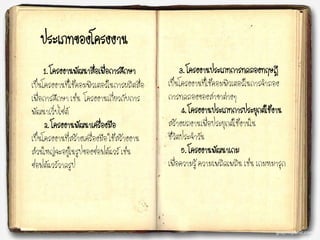 ประเภทของโครงงาน
1. โครงงานพัฒนาสื่อเพื่อการศึกษา
เป็นโครงงานที่ใช้คอมพิวเตอร์ในการผลิตสื่อ
เพื่อการศึกษา เช่น โครงงานเกี่ยวกับการ
พัฒนาเว็บไซต์
2. โครงงานพัฒนาเครื่องมือ
เป็นโครงงานที่สร้างเครื่องมือ ใช้สร้างงาน
ส่วนใหญ่จะอยู่ในรูปของซอฟต์แวร์ เช่น
ซอฟต์แวร์วาดรูป
3. โครงงานประเภทการทดลองทฤษฎี
เป็นโครงงานที่ใช้คอมพิวเตอร์ในการจำลอง
การทดลองของสาขาต่างๆ
4. โครงงานประเภทการประยุกต์ใช้งาน
สร้างผลงานเพื่อประยุกต์ใช้งานใน
ชีวิตประจำวัน
5. โครงงานพัฒนาเกม
เพื่อความรู้ ความเพลิดเพลิน เช่น เกมหมากรุก